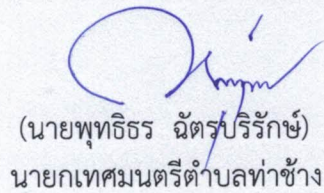 (นายพุทธิธร ฉัตรบริรักษ์)
นายกเทศมนตรีตำบลท่าช้าง